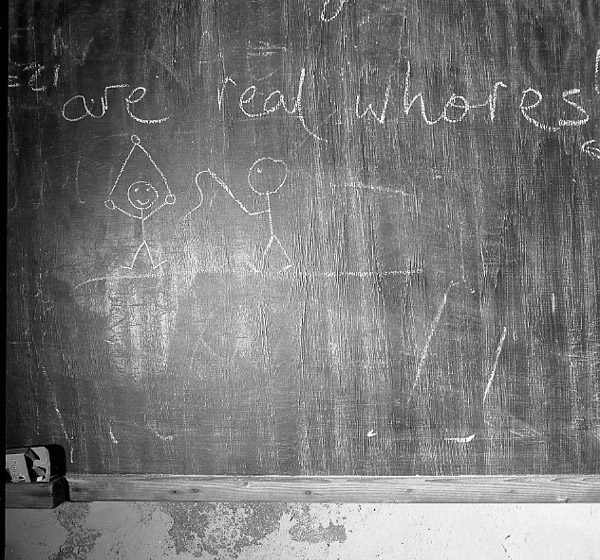 are real whores